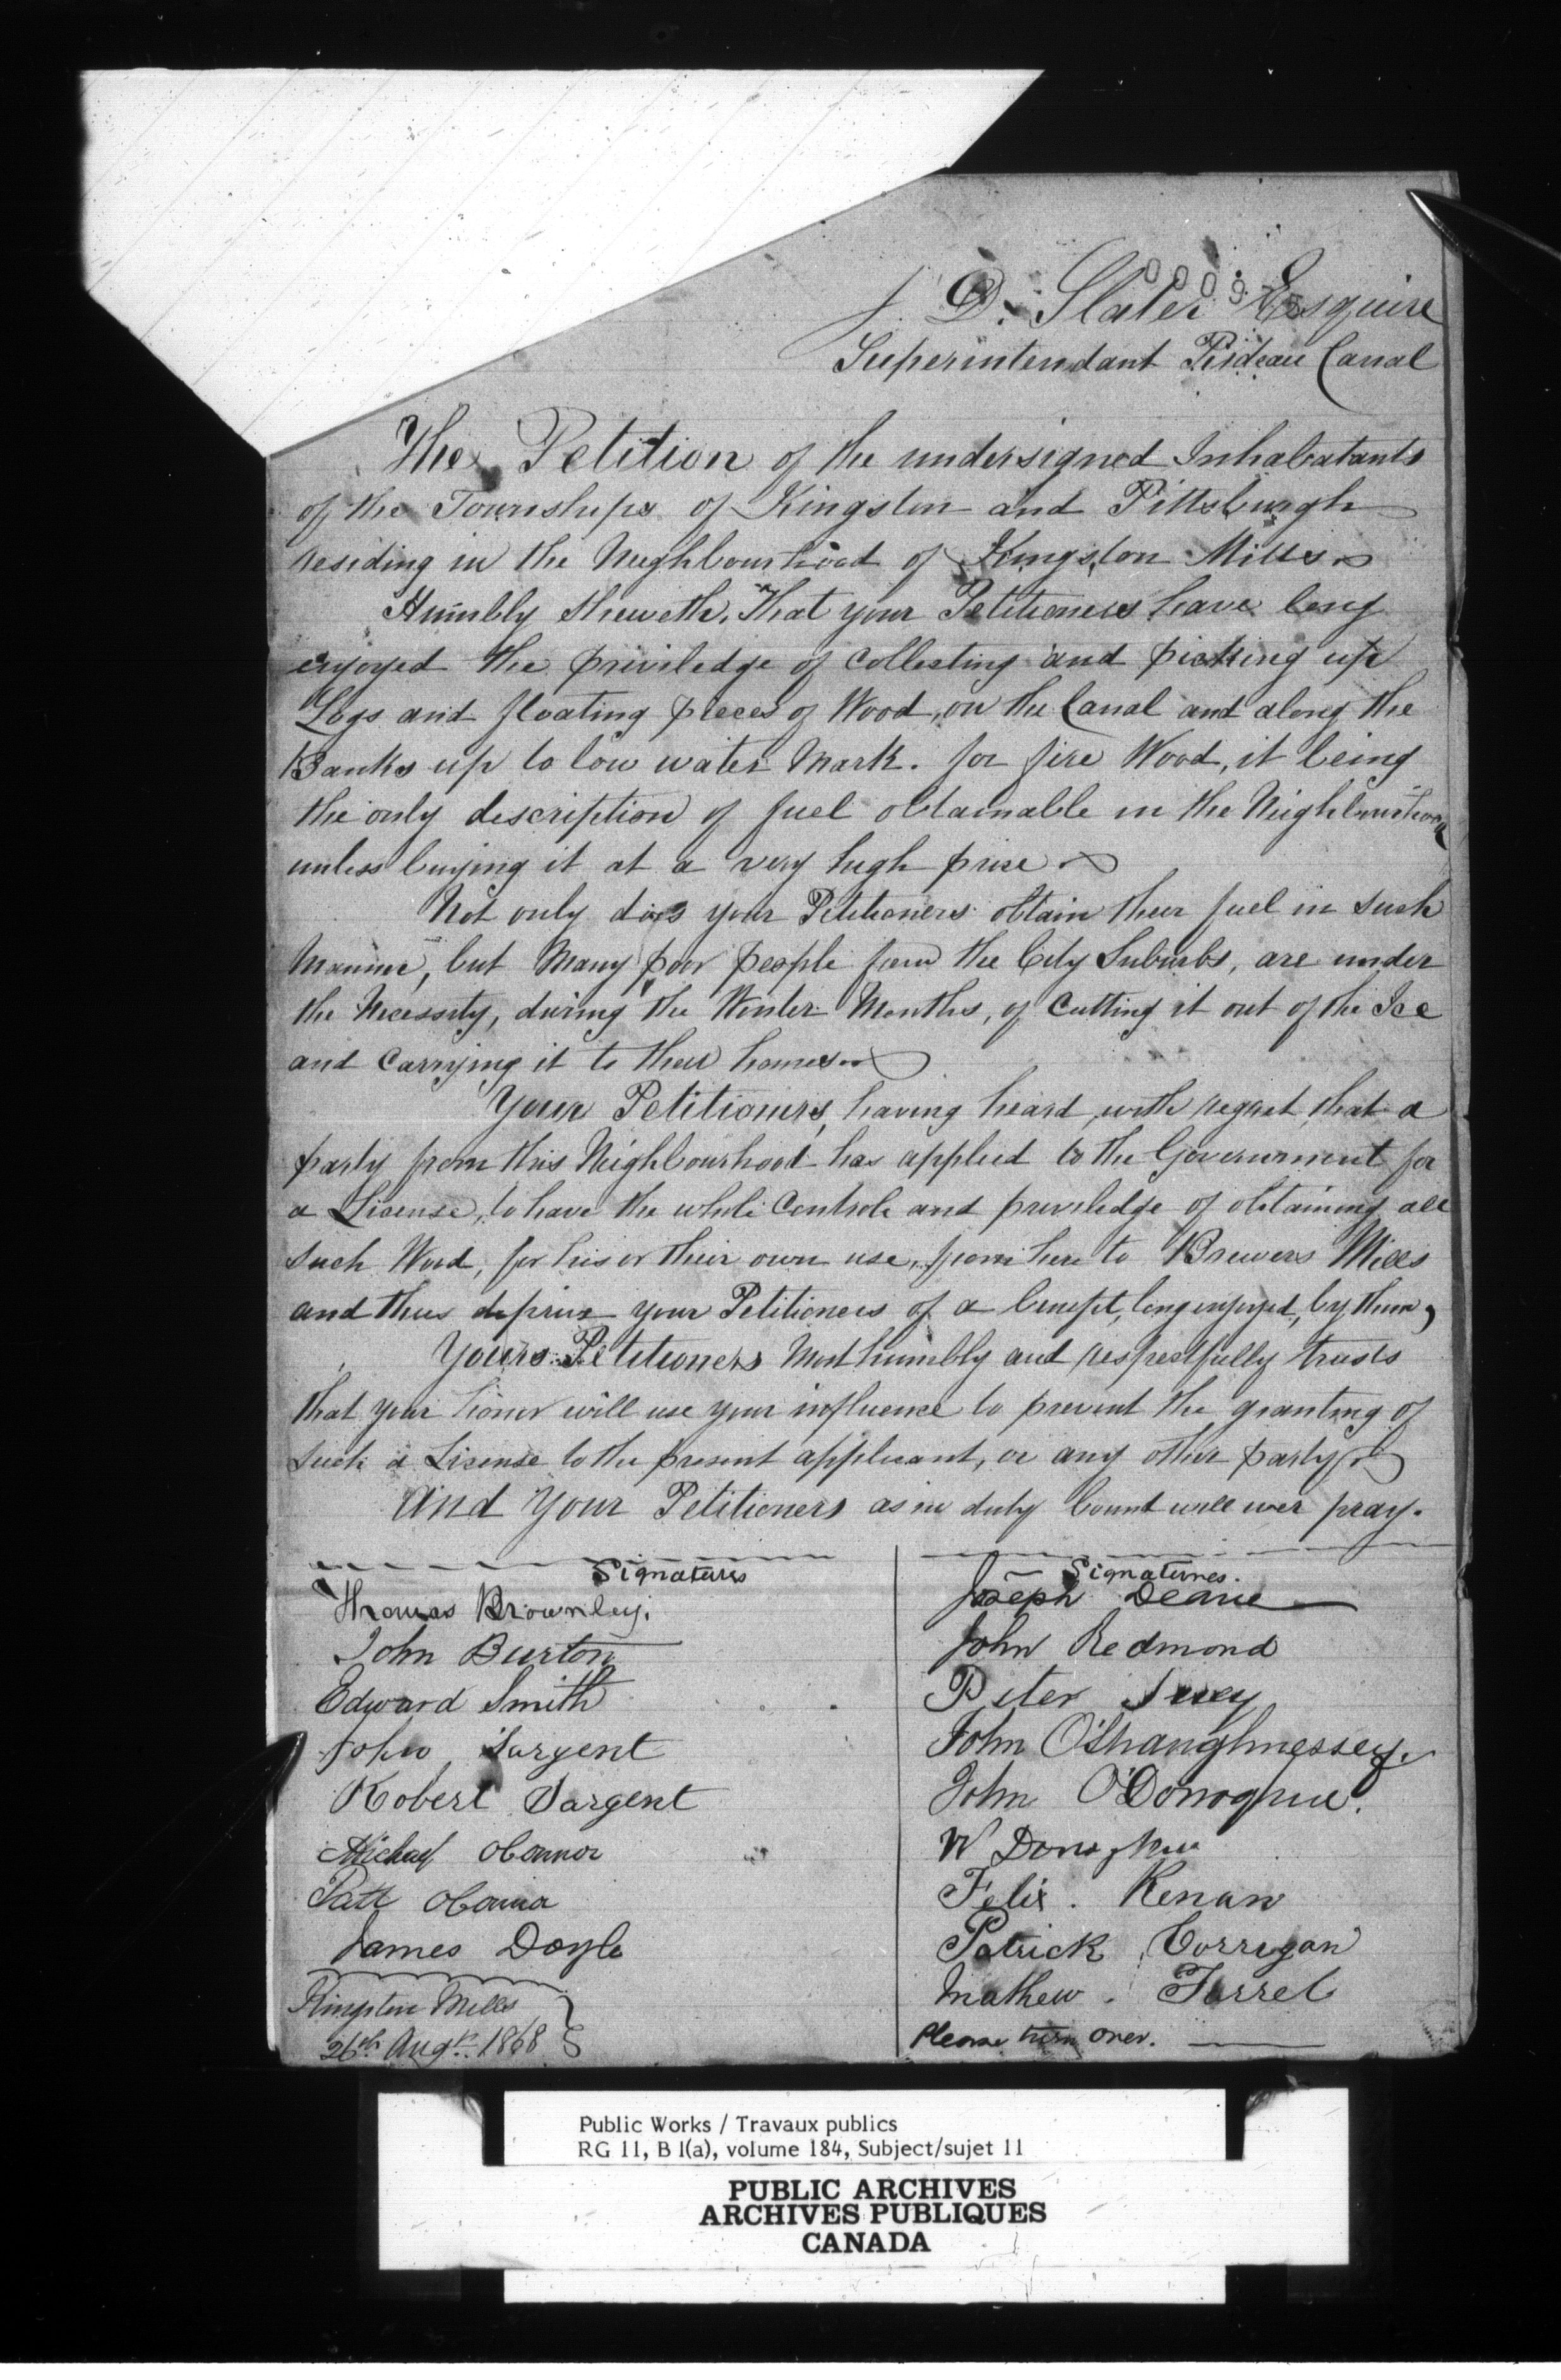 J. D. Slater Esquire
Superintendant Rideau Canal
The Petition of the undersigned Inhabatants
of the Townships of Kingston and Pittsburgh
residing in the Neighbourhood of Kingston Mills
Humbly Sheweth, That your Petitioners have long
enjoyed the priviledge of Collecting and picking up
Logs and floating pieces of Wood, on the Canal and along the
Banks up to low water Mark. for fire Wood, it being
the only description of fuel obtainable in the Neighbourhood
unless buying it at a very high price
Not only does your Petitioners obtain their fuel in such
Manner, but Many poor people from the City Suburbs, are under
the Necessity, during the Winter Months, of Cutting it out of the Ice
and Carrying it to their homes
Your Petitioners, having heard, with regret, that a
party from this Neighbourhood has applied to the Government for
a License, to have the whole Controle and priviledge of obtaining all
such Wood, for his or their own use, from here to Brewers Mills
and thus deprive your Petitioners of a benefit, long enjoyed, by them,
Yours Petitioners Most humbly and respectfully trusts
that your honor will use your influence to prevent the granting of
such a License to the present applicant, or any other party
And Your Petitioners as in duty bound will ever pray.
Signatures
Thomas Brownley.
John Burton
Edward Smith
John Sargent
Robert Sargent
Michael OConnor
Patt OConnor
James Doyle
Kingston Mills
26th Augt. 1868
Signatures.
Joseph Deane
John Redmond
Peter
John O'Shaughnessey.
John O'Donoghue.
W Donoghue
Felix. Kenan
Patrick Corrigan
Mathew. Farrel
Please turn over.
Public Works / Travaux publics
RG 11, B 1(a), volume 184, Subject/sujet 11
PUBLIC ARCHIVES
ARCHIVES PUBLIQUES
CANADA